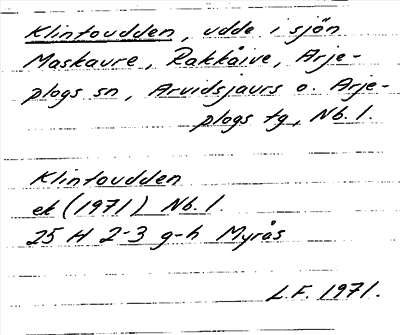 Klintoudden, udde i sjön
Maskaure, Rakkåive, Arje-
plogs sn, Arvidsjaurs o. Arje-
plogs tg, Nb. l.
Klintoudden
ek (1971) Nb. l.
25 H 2-3 g-h Myrås
L.F. 1971.